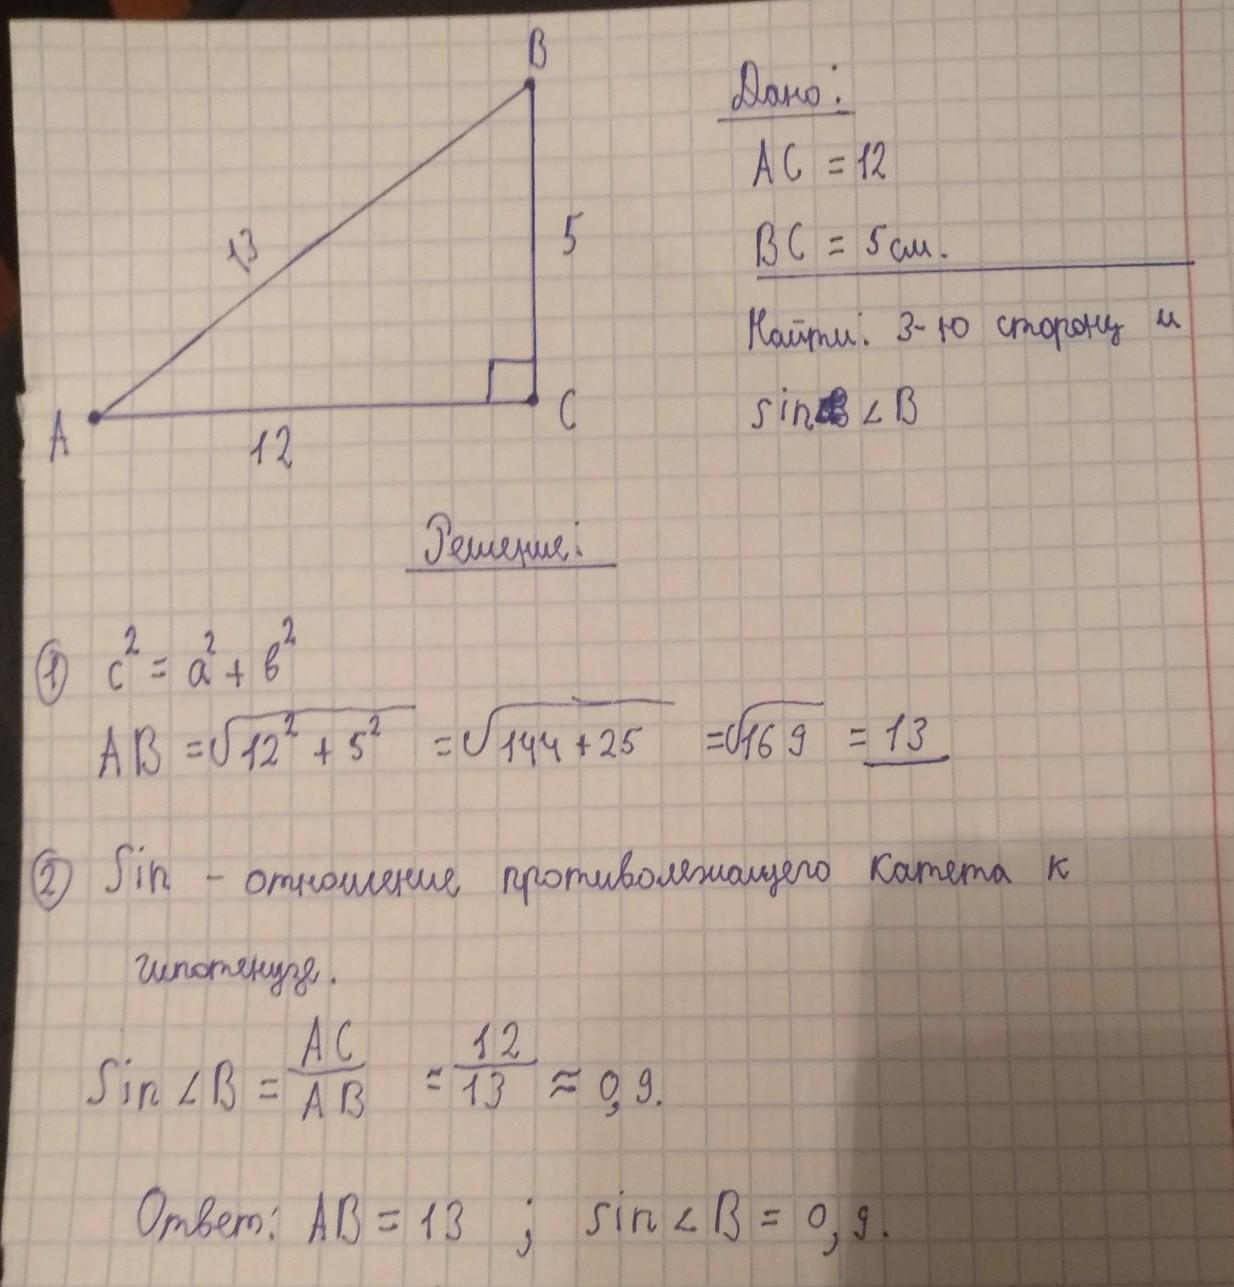 B
Дано:
AC = 12
13
5
BC = 5 см.
Найти: 3-ю сторону и
sin ∠B
A
12
C
Решение:
① c² = a² + b²
AB = √12² + 5² = √144 + 25 = √169 = 13
② Sin - отношение противолежащего катета к
гипотенузе.
Sin ∠B = AC/AB = 12/13 ≈ 0,9.
Ответ: AB = 13 ; sin ∠B = 0,9.